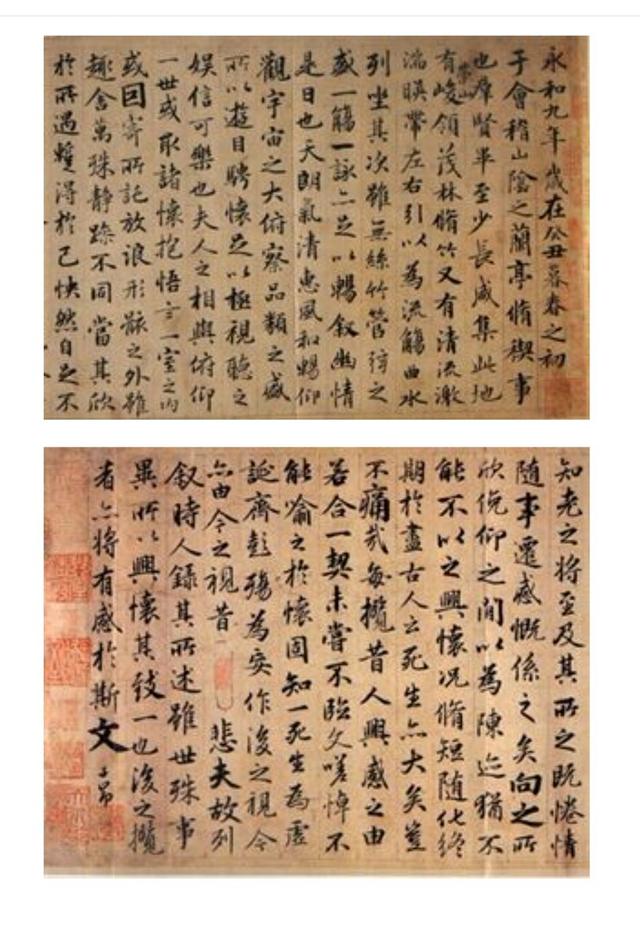 永和九年歲在癸丑暮春之初
于會稽山陰之蘭亭脩禊事
也羣賢畢至少長咸集此地
有崇山峻領茂林脩竹又有清流激
湍暎帶左右引以為流觴曲水
列坐其次雖無絲竹管弦之
盛一觴一詠亦足以暢叙幽情
是日也天朗氣清惠風和暢仰
觀宇宙之大俯察品類之盛
所以遊目騁懷足以極視聽之
娛信可樂也夫人之相與俯仰
一世或取諸懷抱悟言一室之內
或因寄所託放浪形骸之外雖
趣舍萬殊靜躁不同當其欣
於所遇暫得於己怏然自足不
知老之將至及其所之既惓情
隨事遷感慨係之矣向之所
欣俛仰之閒以為陳迹猶不
能不以之興懷況脩短隨化終
期於盡古人云死生亦大矣豈
不痛哉每攬昔人興感之由
若合一契未嘗不臨文嗟悼不
能喻之於懷固知一死生為虛
誕齊彭殤為妄作後之視今
亦由今之視昔 悲夫故列
叙時人錄其所述雖世殊事
異所以興懷其致一也後之攬
者亦將有感於斯文 子昂